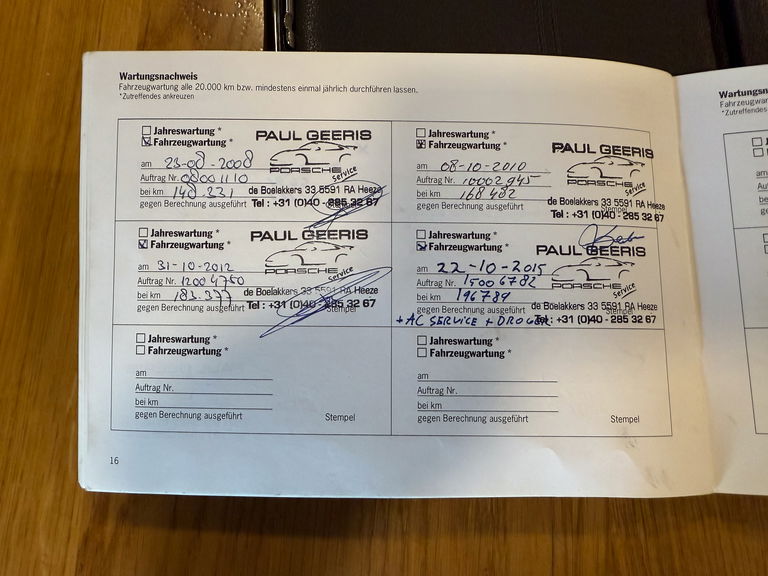 Wartungsnachweis
Fahrzeugwartung alle 20.000 km bzw. mindestens einmal jährlich durchführen lassen.
*Zutreffendes ankreuzen
Jahreswartung *
Fahrzeugwartung *
am 25-08-2008
Auftrag Nr. 08001110
bei km 148 331
gegen Berechnung ausgeführt
PAUL GEERIS
PORSCHE Service
de Boelakkers 33 5591 RA Heeze
Tel : +31 (0)40 - 285 32 67
Jahreswartung *
Fahrzeugwartung *
am 08-10-2010
Auftrag Nr. 10002945
bei km 168 482
gegen Berechnung ausgeführt
Stempel
PAUL GEERIS
PORSCHE Service
de Boelakkers 33 5591 RA Heeze
Tel : +31 (0)40 - 285 32 67
Jahreswartung *
Fahrzeugwartung *
am 31-10-2012
Auftrag Nr. 12004750
bei km 183.377
gegen Berechnung ausgeführt
Stempel
PAUL GEERIS
PORSCHE Service
de Boelakkers 33 5591 RA Heeze
Tel : +31 (0)40 - 285 32 67
Jahreswartung *
Fahrzeugwartung *
am 22-10-2015
Auftrag Nr. 15006782
bei km 196789
gegen Berechnung ausgeführt
Stempel
PAUL GEERIS
PORSCHE Service
de Boelakkers 33 5591 RA Heeze
Tel : +31 (0)40 - 285 32 67
+ AC SERVICE + DROGER
Jahreswartung *
Fahrzeugwartung *
am
Auftrag Nr.
bei km
gegen Berechnung ausgeführt
Stempel
Jahreswartung *
Fahrzeugwartung *
am
Auftrag Nr.
bei km
gegen Berechnung ausgeführt
Stempel
16